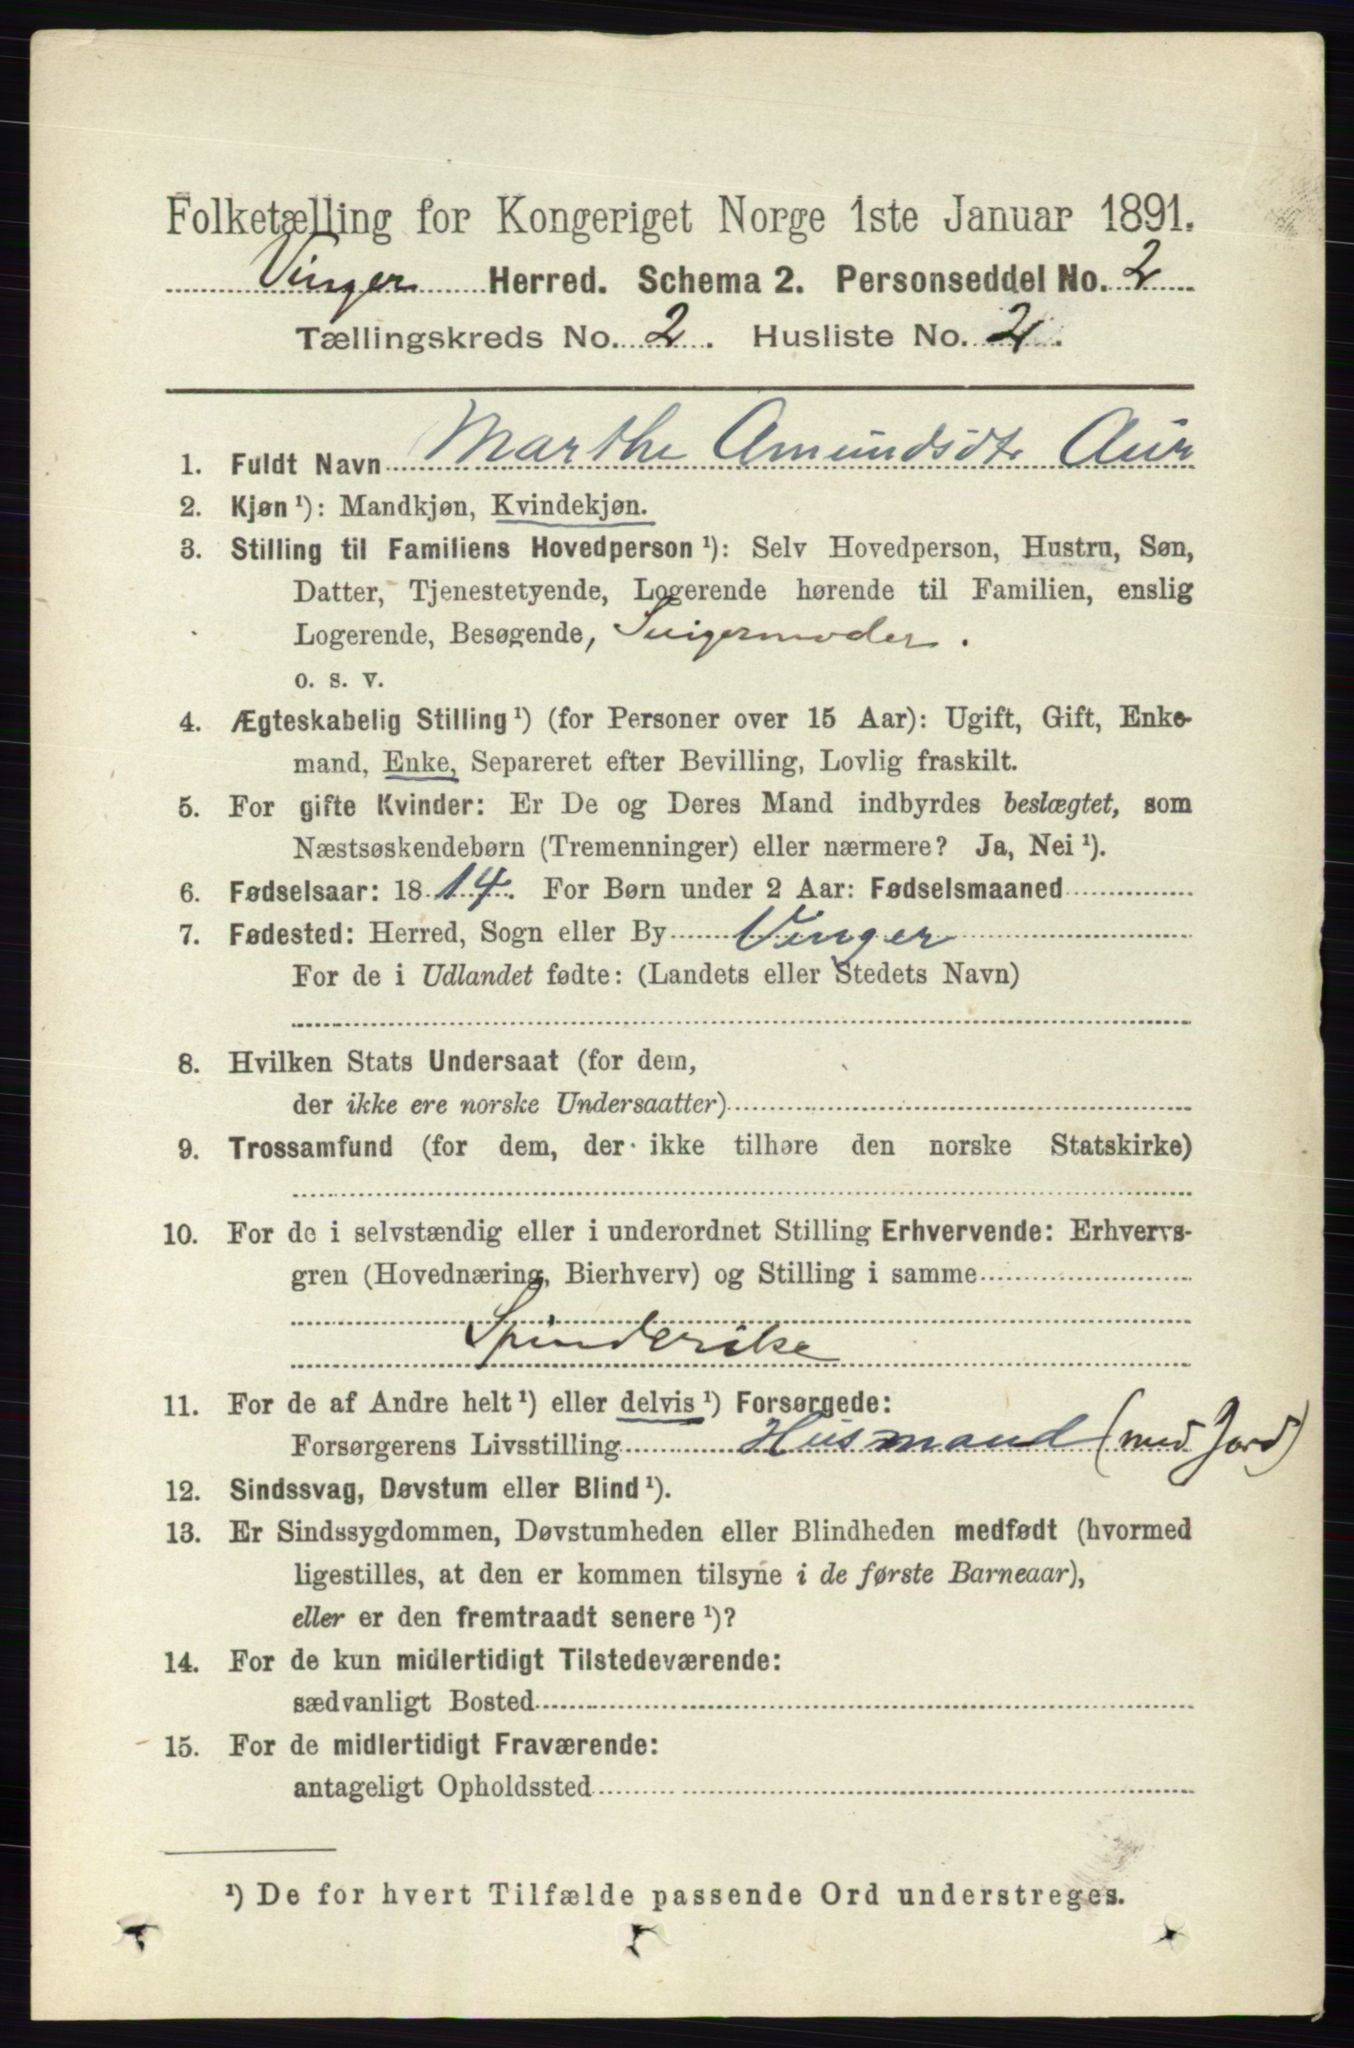 Folketælling for Kongeriget Norge 1ste Januar 1891.
Vinger Herred. Schema 2. Personseddel No. 2
Tællingskreds No. 2. Husliste No. 2.
1. Fuldt Navn Marthe Amundsdt. Aur
2. Kjøn ¹): Mandkjøn, Kvindekjøn.
3. Stilling til Familiens Hovedperson ¹): Selv Hovedperson, Hustru, Søn,
Datter, Tjenestetyende, Logerende hørende til Familien, enslig
Logerende, Besøgende, Svigermoder.
o. s. v.
4. Ægteskabelig Stilling ¹) (for Personer over 15 Aar): Ugift, Gift, Enke-
mand, Enke, Separeret efter Bevilling, Lovlig fraskilt.
5. For gifte Kvinder: Er De og Deres Mand indbyrdes beslægtet, som
Næstsøskendebørn (Tremenninger) eller nærmere? Ja, Nei ¹).
6. Fødselsaar: 1814. For Børn under 2 Aar: Fødselsmaaned
7. Fødested: Herred, Sogn eller By Vinger
For de i Udlandet fødte: (Landets eller Stedets Navn)
8. Hvilken Stats Undersaat (for dem,
der ikke ere norske Undersaatter)
9. Trossamfund (for dem, der ikke tilhøre den norske Statskirke)
10. For de i selvstændig eller i underordnet Stilling Erhvervende: Erhvervs-
gren (Hovednæring, Bierhverv) og Stilling i samme
Spinderske
11. For de af Andre helt ¹) eller delvis ¹) Forsørgede:
Forsørgerens Livsstilling Husmand (med Jord)
12. Sindssvag, Døvstum eller Blind ¹).
13. Er Sindssygdommen, Døvstumheden eller Blindheden medfødt (hvormed
ligestilles, at den er kommen tilsyne i de første Barneaar),
eller er den fremtraadt senere ¹)?
14. For de kun midlertidigt Tilstedeværende:
sædvanligt Bosted
15. For de midlertidigt Fraværende:
antageligt Opholdssted
¹) De for hvert Tilfælde passende Ord understreges.